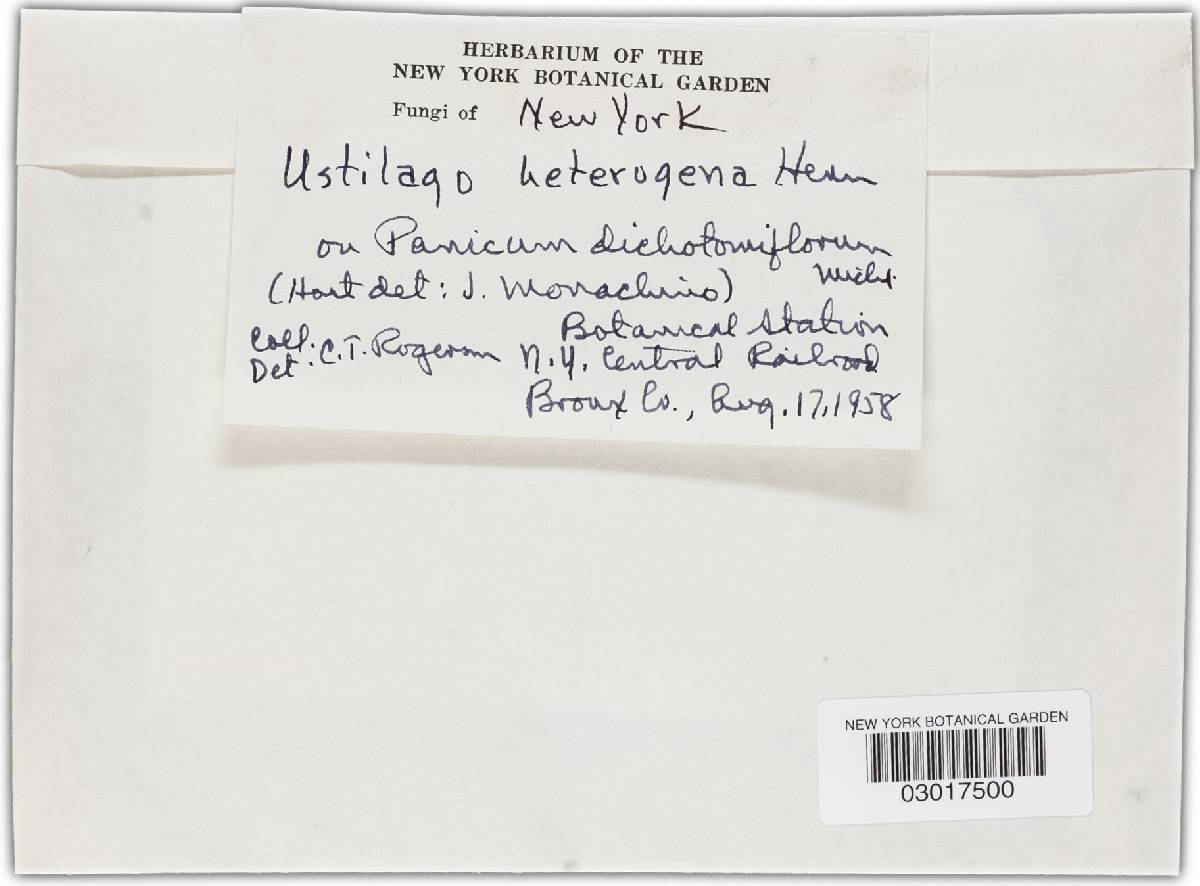 HERBARIUM OF THE
NEW YORK BOTANICAL GARDEN
Fungi of New York
Ustilago heterogena Henn
on Panicum dichotomiflorum
Michx.
(Host det: J. Monachino)
Botanical Station
Coll.
Det: C.T. Rogerson N.Y. Central Railroad
Bronx Co., Aug. 17, 1958
NEW YORK BOTANICAL GARDEN
03017500